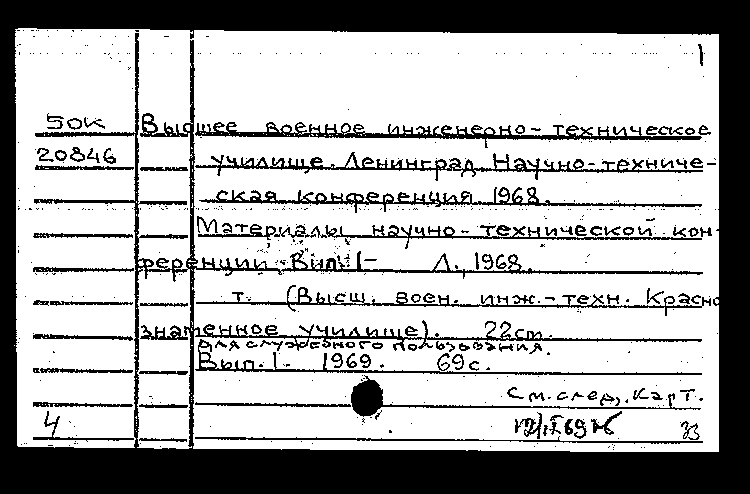 1
50К Высшее военное инженерно-техническое
20846 училище. Ленинград. Научно-техниче-
ская конференция 1968.
Материалы научно-технической кон-
ференции. Вып. 1- Л., 1968.
т. (Высш. воен. инж.-техн. Красно
знаменное училище). 22ст.
Для служебного пользования.
Вып. 1. 1969. 69с.
См. след. карт.
4 33